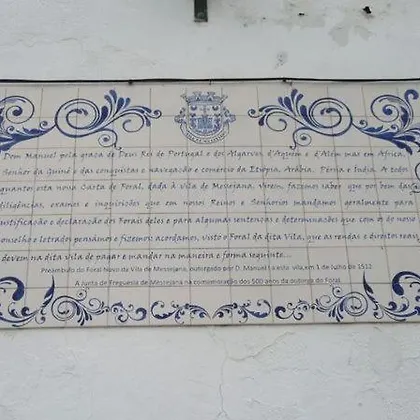 Dom Manuel pola graça de Deus Rei de Portugal e dos Algarves d'Aquém e d'Além mar em África,
Senhor da Guiné e das conquistas e navegação e comércio da Etiópia, Arábia, Pérsia e Índia. A todos
quanto esta nova Carta de Foral, dada à Vila de Messejana, virem, fazemos saber que por bem das
diligências, exames e inquirições que em nosso Reinos e Senhorios mandamos geralmente para
justificação e declaração dos Forais deles e para algumas sentenças e determinações que com o do nosso
Conselho e letrados pensámos e fizemos: acordamos, visto o Foral da dita Vila, que as rendas e direitos reais
devem na dita vila de pagar e mandar na maneira e forma seguinte...
Preâmbulo do Foral Novo da Vila de Messejana, outorgado por D. Manuel I a esta vila, em 1 de Julho de 1512
A Junta de Freguesia de Messejana na comemoração dos 500 anos da outorga do Foral.